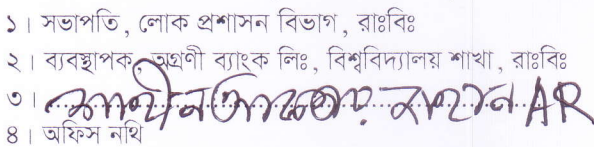 ১। সভাপতি, লোক প্রশাসন বিভাগ, রাঃবিঃ
২। ব্যবস্থাপক, অগ্রণী ব্যাংক লিঃ, বিশ্ববিদ্যালয় শাখা, রাঃবিঃ
৩। AR
৪। অফিস নথি